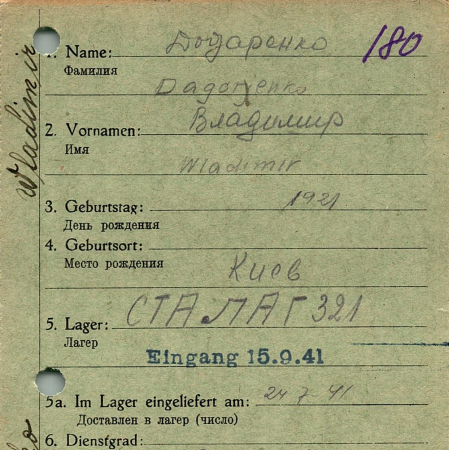 Wladimir
1. Name: Додаренко 180
Фамилия
2. Vornamen: Владимир
Имя
Wladimir
3. Geburtstag: 1921
День рождения
4. Geburtsort:
Место рождения
Киев
5. Lager: СТАЛАГ 321
Лагер
Eingang 15.9.41
5a. Im Lager eingeliefert am: 24 7 41.
Доставлен в лагер (число)
6. Dienstgrad: